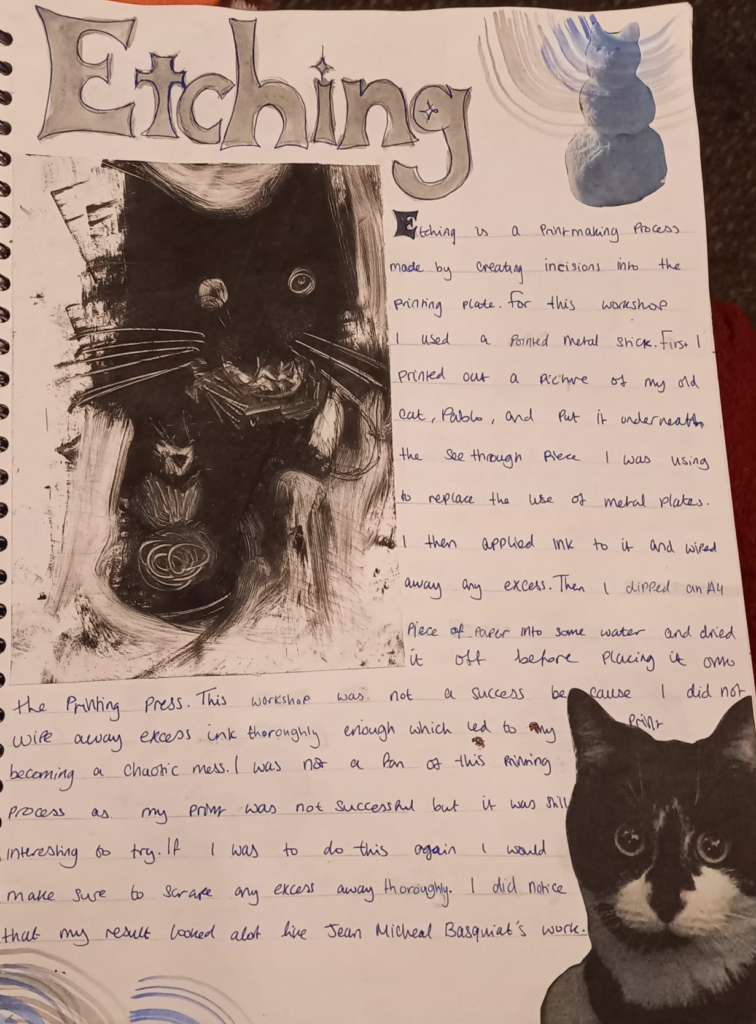 Etching
Etching is a Printmaking Process
made by creating incisions into the
printing plate. For this workshop
I used a Pointed metal stick. First I
printed out a Picture of my old
cat, Pablo, and Put it underneath
the see through Piece I was using
to replace the use of metal plates.
I then applied ink to it and wiped
away any excess. Then I dipped an A4
Piece of Paper into some water and dried
it off before placing it onto
the Printing Press. This workshop was not a success because I did not
wipe away excess ink thoroughly enough which led to my Print
becoming a chaotic mess. I was not a fan of this Printing
Process as my print was not successful but it was still
interesting to try. If I was to do this again I would
make sure to scrape any excess away thoroughly. I did notice
that my result looked alot like Jean Micheal Basquiat's work.